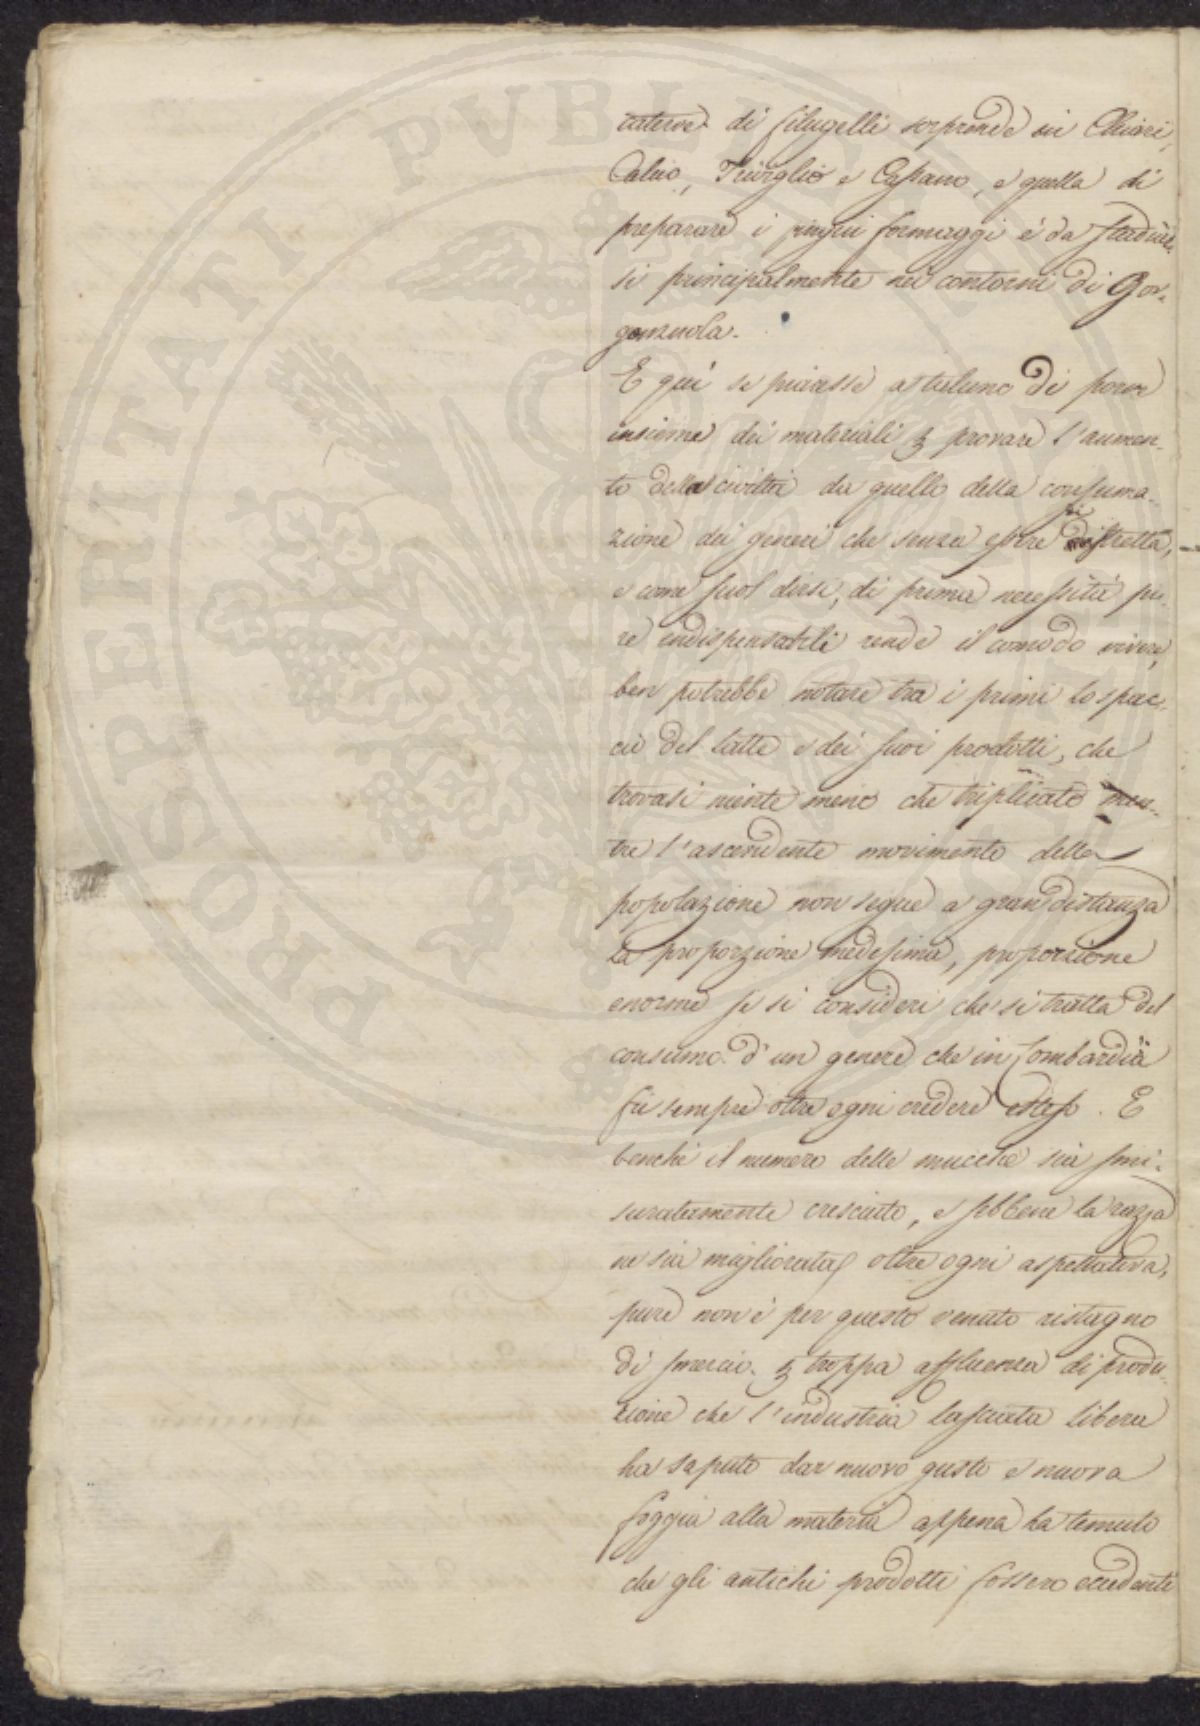 caterve di filugelli sorprende in Chiari,
Calcio, Triviglio e Cassano, e quella di
preparare i pingui formaggi è da studiar-
si principalmente nei contorni di Gor-
gonzuola.
E quì se piacesse a taluno di porre
insieme dei materiali per provare l'aumen-
to della civiltà da quello della consuma-
zione dei generi che senza essere di stretta,
e come suol dirsi, di prima necessità pu-
re indispensabili rende il comodo vivere,
ben potrebbe notare tra i primi lo spac-
cio del latte e dei suoi prodotti, che
trovasi niente meno che triplicato men-
tre l'ascendente movimento della
popolazione non segue a gran distanza
la proporzione medesima, proporzione
enorme se si consideri che si tratta del
consumo d'un genere che in Lombardia
fu sempre oltre ogni credere esteso. E
benchè il numero delle mucche sia smi-
suratamente cresciuto, e sebbene la razza
ne sia migliorata oltre ogni aspettativa,
pure non è per questo venuto ristagno
di smercio per troppa affluenza di produ-
zione che l'industria lasciata libera
ha saputo dar nuovo gusto e nuova
foggia alla materia appena ha temuto
che gli antichi prodotti fossero eccedenti
PROSPERITATI PVBLICAE